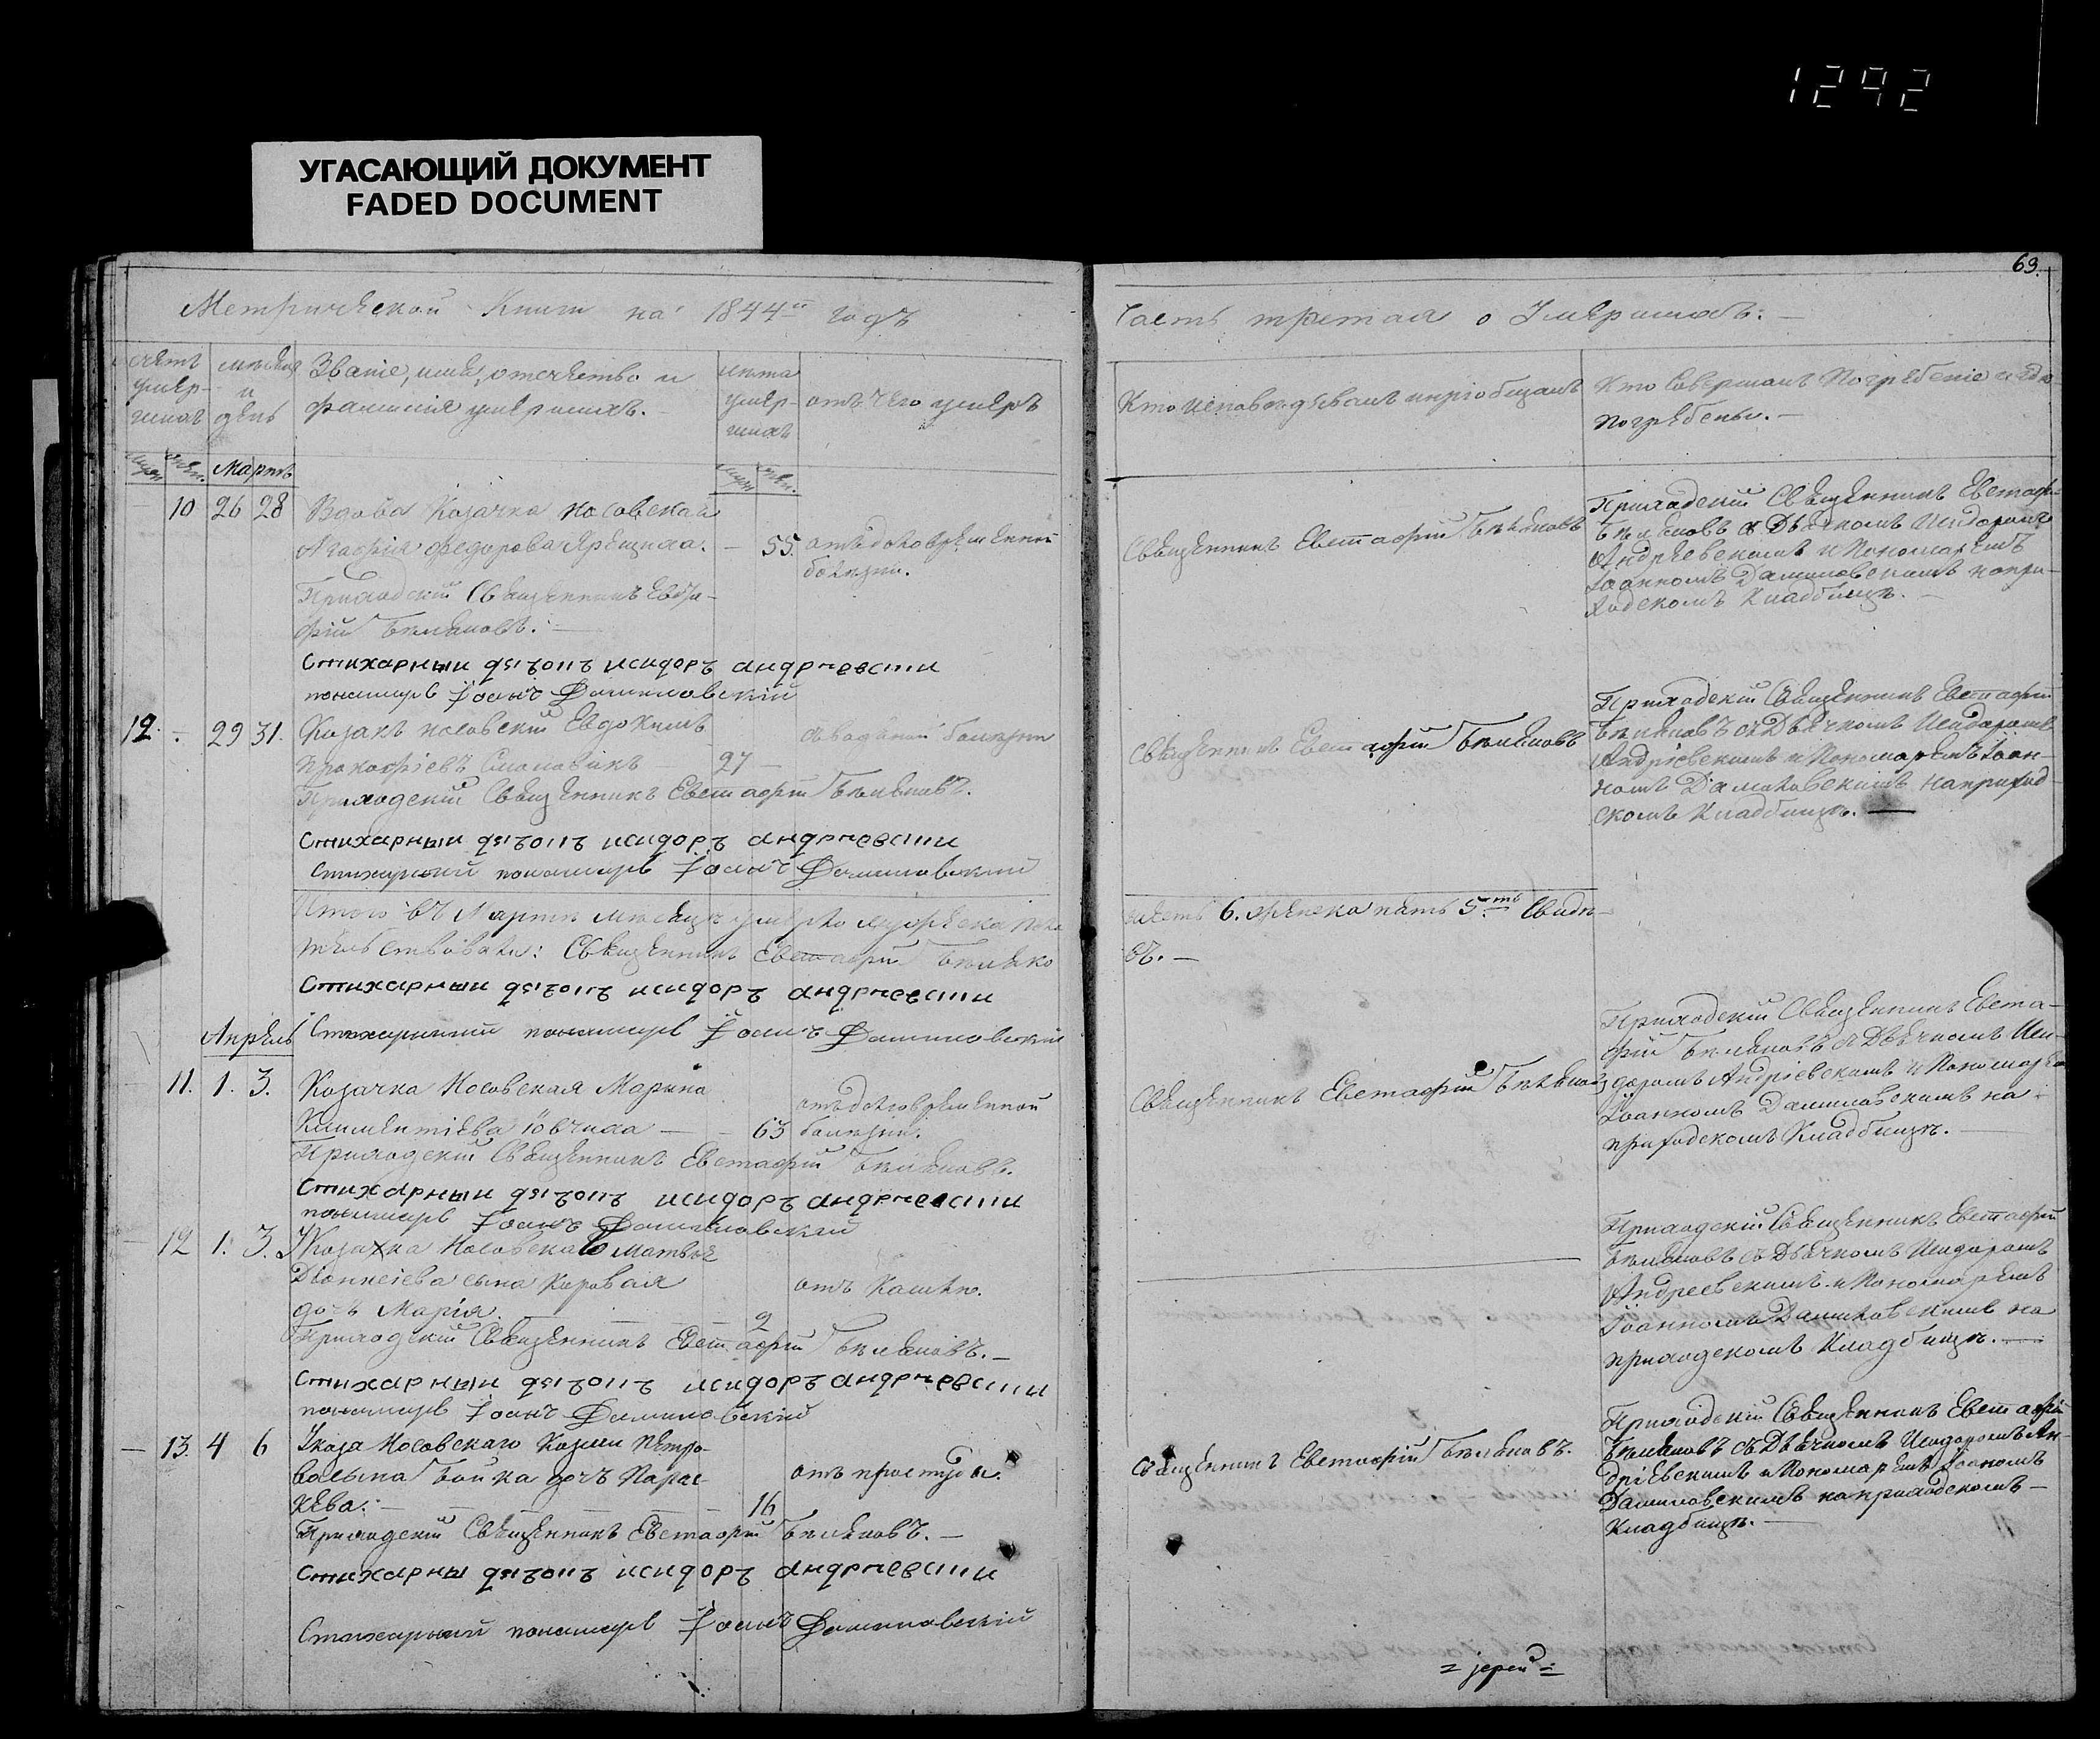 1292
УГАСАЮЩИЙ ДОКУМЕНТ
FADED DOCUMENT
63.
Метрической Книги на 1844й годъ
Часть третая о Умершихъ:
счетъ умершихъ
мѣсяцъ и день
Званіе, имя, отечество и фамилія умершихъ.
лѣта умершихъ
отъ чего умеръ
Кто исповѣдывалъ и пріобщалъ
Кто Совершалъ Погребеніе и гдѣ погребены.
Мартъ
10 26 28 Вдова Козачка Носовская
Агафія Федорова Ярещиха. — 55. отъ долговременной
болѣзни.
Приходскій Священникъ Евста-
фій Бѣляковъ.
Стихарный дьячокъ исидоръ андриевски
пономарь Іоанъ Даниловскій
Священникъ Евстафій Бѣляковъ
Приходскій Священникъ Евстафі-
Бѣляковъ съ Дьячкомъ Исидоромъ
Андріевскимъ и Пономаремъ
Іоанномъ Даниловскимъ на при-
ходскомъ Кладбищѣ.
12. - 29 31. Козакъ носовскій Евдокимъ
прокофіевъ 27
Приходскій Священникъ Евстафій Бѣляковъ.
Стихарный дьячокъ исидоръ андриевски
Стихарный пономарь Іоанъ Даниловский
Священникъ Евстафій Бѣляковъ
Приходскій Священникъ Евстафій
Бѣляковъ съ Дьячкомъ Исидоромъ
Андріевскимъ и Пономаремъ Іоан-
номъ Даниловскимъ на приход-
скомъ Кладбищѣ.
Итого въ Мартѣ мѣсяцѣ умерло мужеска пола
шесть 6. женска пять 5ть Свидѣ-
тельствовали: Священникъ Евстафій Бѣляко
въ.
Стихарный дьячокъ исидоръ андриевски
Стихарный пономарь Іоанъ Даниловский
Апрель
11. 1. 3. Козачка Носовская Марина
Климентіева Іовчиха — 63 отъ долговременной
болѣзни.
Приходскій Священникъ Евстафій Бѣляковъ.
Стихарный дьячокъ исидоръ андриевски
пономарь Іоанъ Даниловский
Священникъ Евстафій Бѣляковъ
Приходскій Священникъ Евста-
фій Бѣляковъ съ Дьячкомъ Иси-
доромъ Андріевскимъ и Пономаре
Іоанномъ Даниловскимъ на
приходскомъ Кладбищѣ.
12 1. 3. Козака Носовскаго Матвея
Діонисіева сына Коровая отъ Кашлю.
дочь Марія. 2
Приходскій Священникъ Евстафій Бѣляковъ.
Стихарный дьячокъ исидоръ андриевски
пономарь Іоанъ Даниловский
Приходскій Священникъ Евстафій
Бѣляковъ съ Дьячкомъ Исидоромъ
Андреевскимъ и Пономаремъ
Іоанномъ Даниловскимъ на
приходскомъ Кладбищѣ.
— 13. 4 6 Козака Носовскаго Козми Петро-
ва сына Бойка дочъ Парас-
кева. — 16 отъ простуды.
Приходскій Священникъ Евстафій Бѣляковъ.
Стихарны дьячокъ исидоръ андриевски
Стихарный пономарь Іоанъ Даниловский
Священникъ Евстафій Бѣляковъ.
Приходскій Священникъ Евстафій
Бѣляковъ съ Дьячкомъ Исидоромъ Ан-
дріевскимъ и Пономаремъ Іоаномъ
Даниловскимъ на приходскомъ
Кладбищѣ.
= іерей =